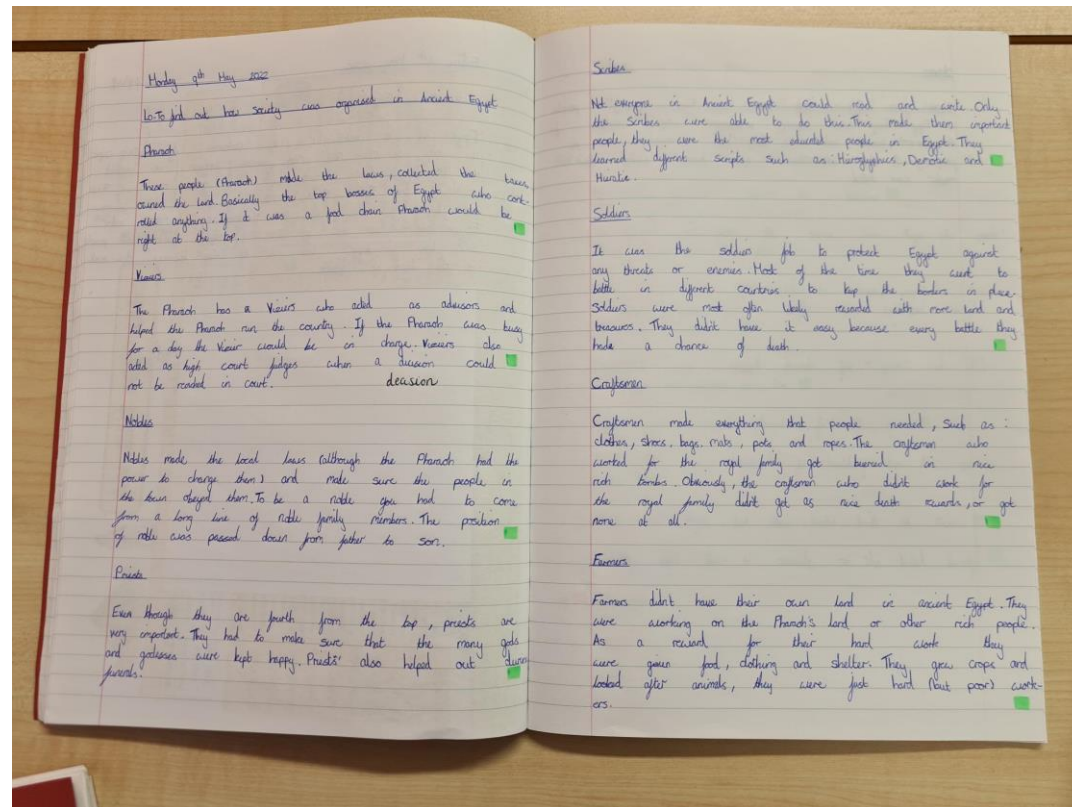 Monday 9th May 2022
Lo-To find out how society was organised in Ancient Egypt
Pharaoh
These people (Pharaoh) made the laws, collected the taxes,
owned the land. Basically the top bosses of Egypt who cont-
rolled anything. If it was a food chain Pharaoh would be
right at the top.
Viziers
The Pharaoh has a Viziers who acted as advisors and
helped the Pharaoh run the country. If the Pharaoh was busy
for a day the Vizier would be in charge. Viziers also
acted as high court judges when a decision could
not be reached in court. decision
Nobles
Nobles made the local laws (although the Pharaoh had the
power to change them) and made sure the people in
the town obeyed them. To be a noble you had to come
from a long line of noble family members. The position
of noble was passed down from father to son.
Priests
Even though they are fourth from the top, priests are
very important. They had to make sure that the many gods
and godesses were kept happy. Priests' also helped out
funerals.
Scribes
Not everyone in Ancient Egypt could read and write. Only
the Scribes were able to do this. This made them important
people, they were the most educated people in Egypt. They
learned different scripts such as: Hieroglyphics, Demotic and
Hieratic.
Soldiers
It was the soldiers job to protect Egypt against
any threats or enemies. Most of the time they went to
battle in different countries to keep the borders in place.
Soldiers were most often likely rewarded with more land and
treasures. They didn't have it easy because every battle they
had a chance of death.
Craftsmen
Craftsmen made everything that people needed, such as:
clothes, shoes, bags, mats, pots and ropes. The craftsmen who
worked for the royal family got buried in nice
rich tombs. Obviously, the craftsmen who didn't work for
the royal family didn't got as nice death rewards, or got
none at all.
Farmers
Farmers didn't have their own land in ancient Egypt. They
were working on the Pharaoh's land or other rich people.
As a reward for their hard work they
were given food, clothing and shelter. They grew crops and
looked after animals, they were just hard (but poor) work-
ers.